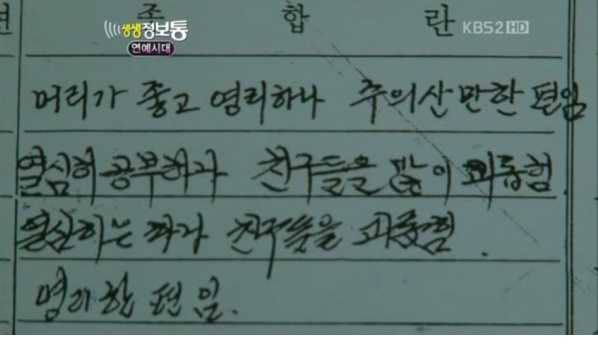 합 란
생생정보통
연예시대
KBS2 HD
머리가 좋고 영리하나 주의산만한 편임
열심히 공부하나 친구들을 많이 괴롭힘.
친구들을 괴롭힘.
영리한 편임.